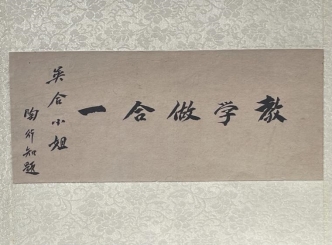 教学做合一
英合小姐
陶行知題